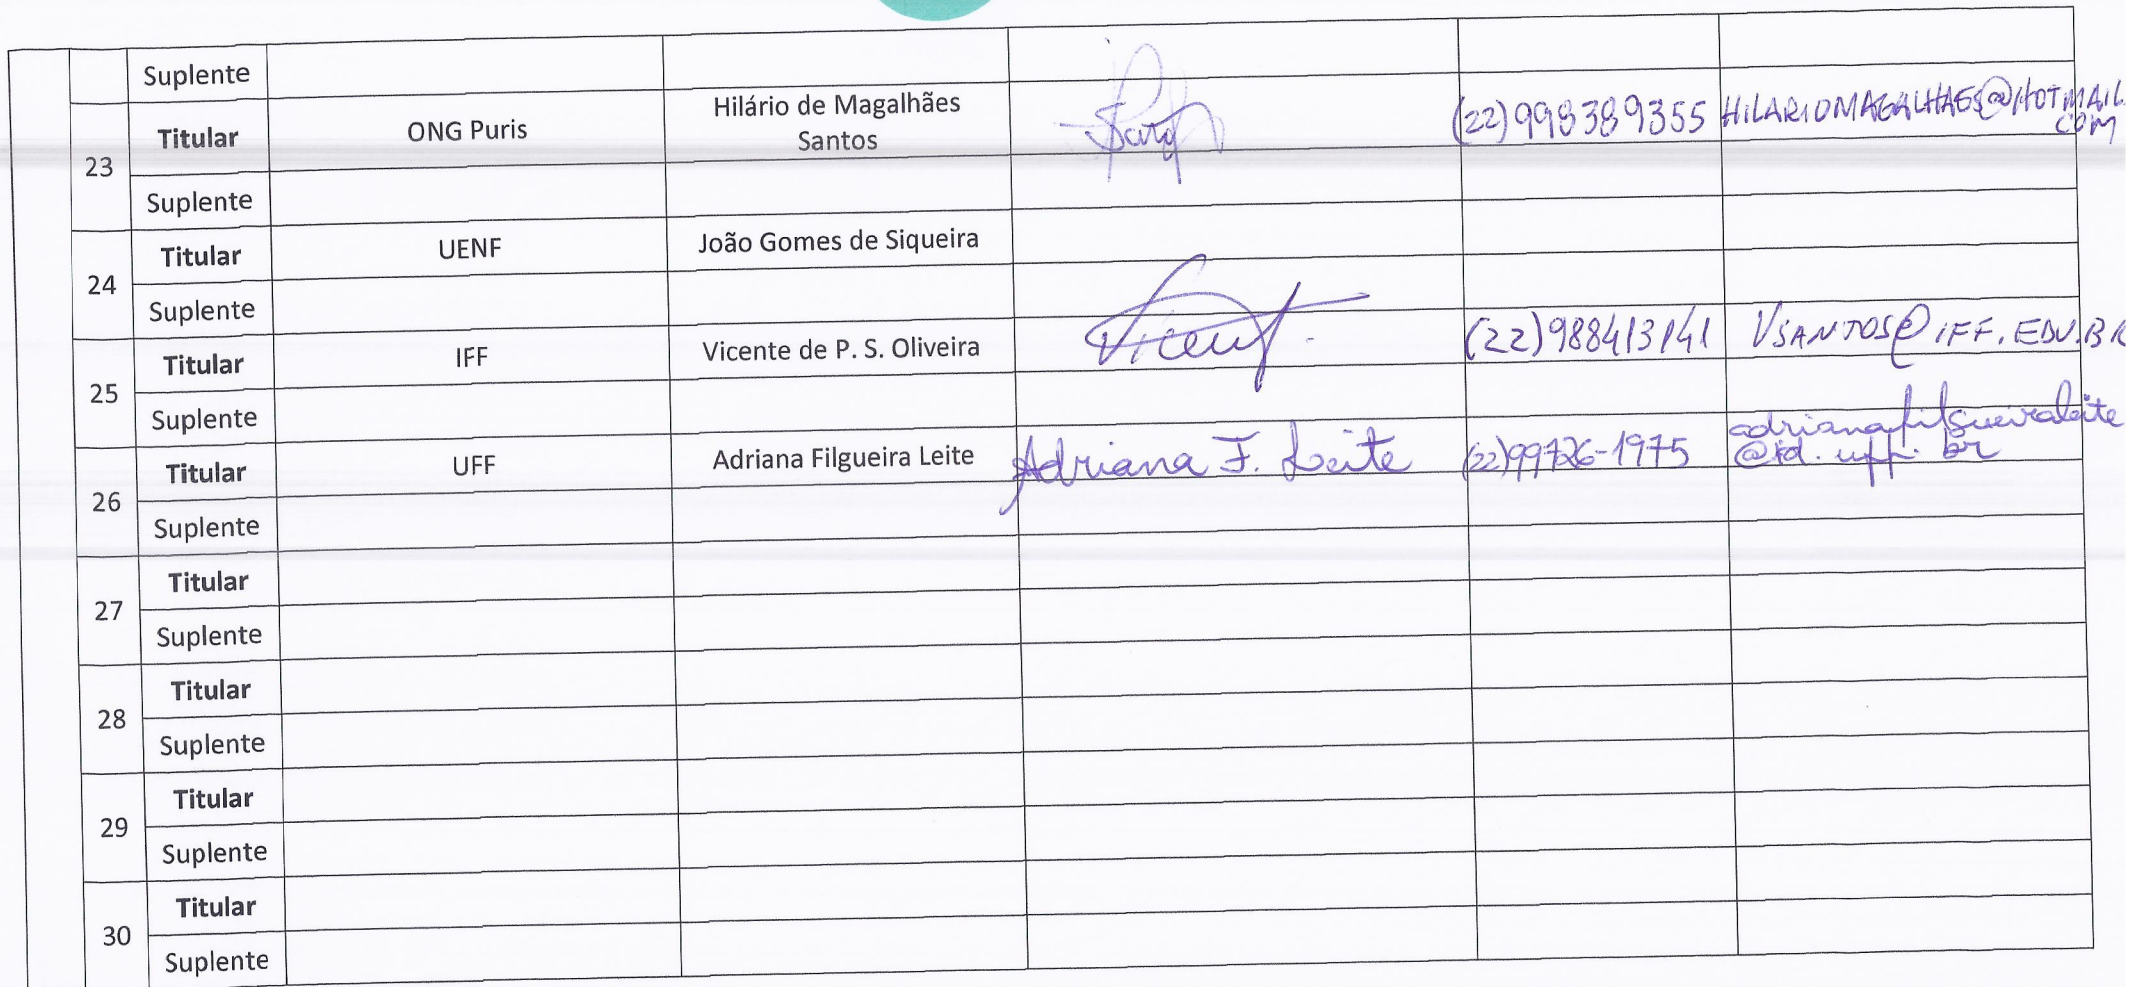 Suplente
23 Titular ONG Puris Hilário de Magalhães Santos (22)998389355 HILARIOMAGALHAES@HOTMAIL.COM
Suplente
24 Titular UENF João Gomes de Siqueira
Suplente
25 Titular IFF Vicente de P. S. Oliveira Vicent (22)988413141 VSANTOS@IFF.EDU.BR
Suplente
26 Titular UFF Adriana Filgueira Leite Adriana F. Leite (22)99726-1975 adrianafilgueiraleite @id.uff.br
Suplente
27 Titular
Suplente
28 Titular
Suplente
29 Titular
Suplente
30 Titular
Suplente